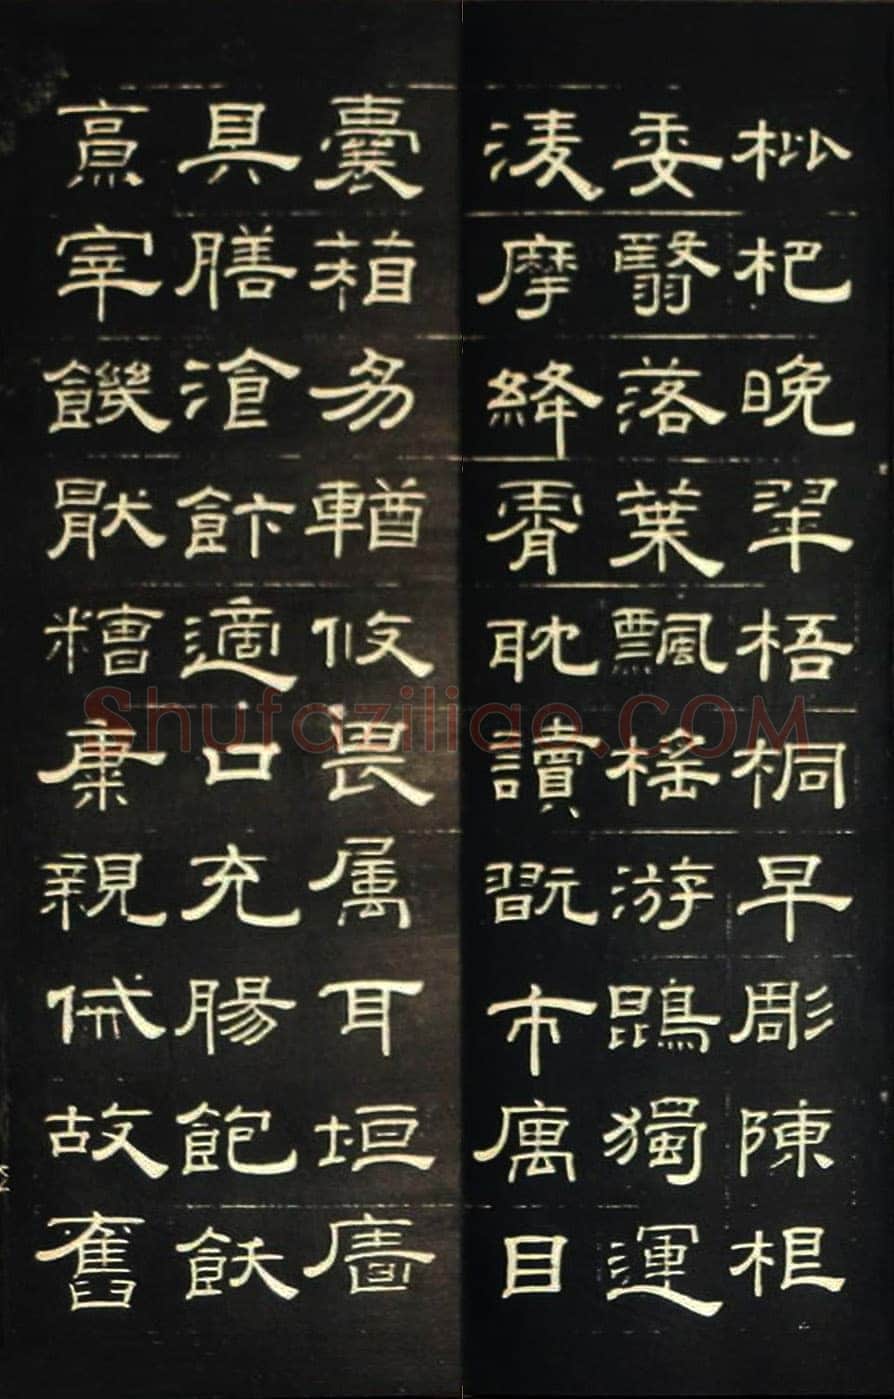 枇杷晚翠梧桐早彫陳根
委翳落葉飄榣游鵾獨運
淩摩絳霄耽讀翫市庽目
囊葙易輶攸畏属耳垣廧
具膳湌飰適口充腸飽飫
烹宰饑猒糟糠親戚故舊
Shufaziliao.COM